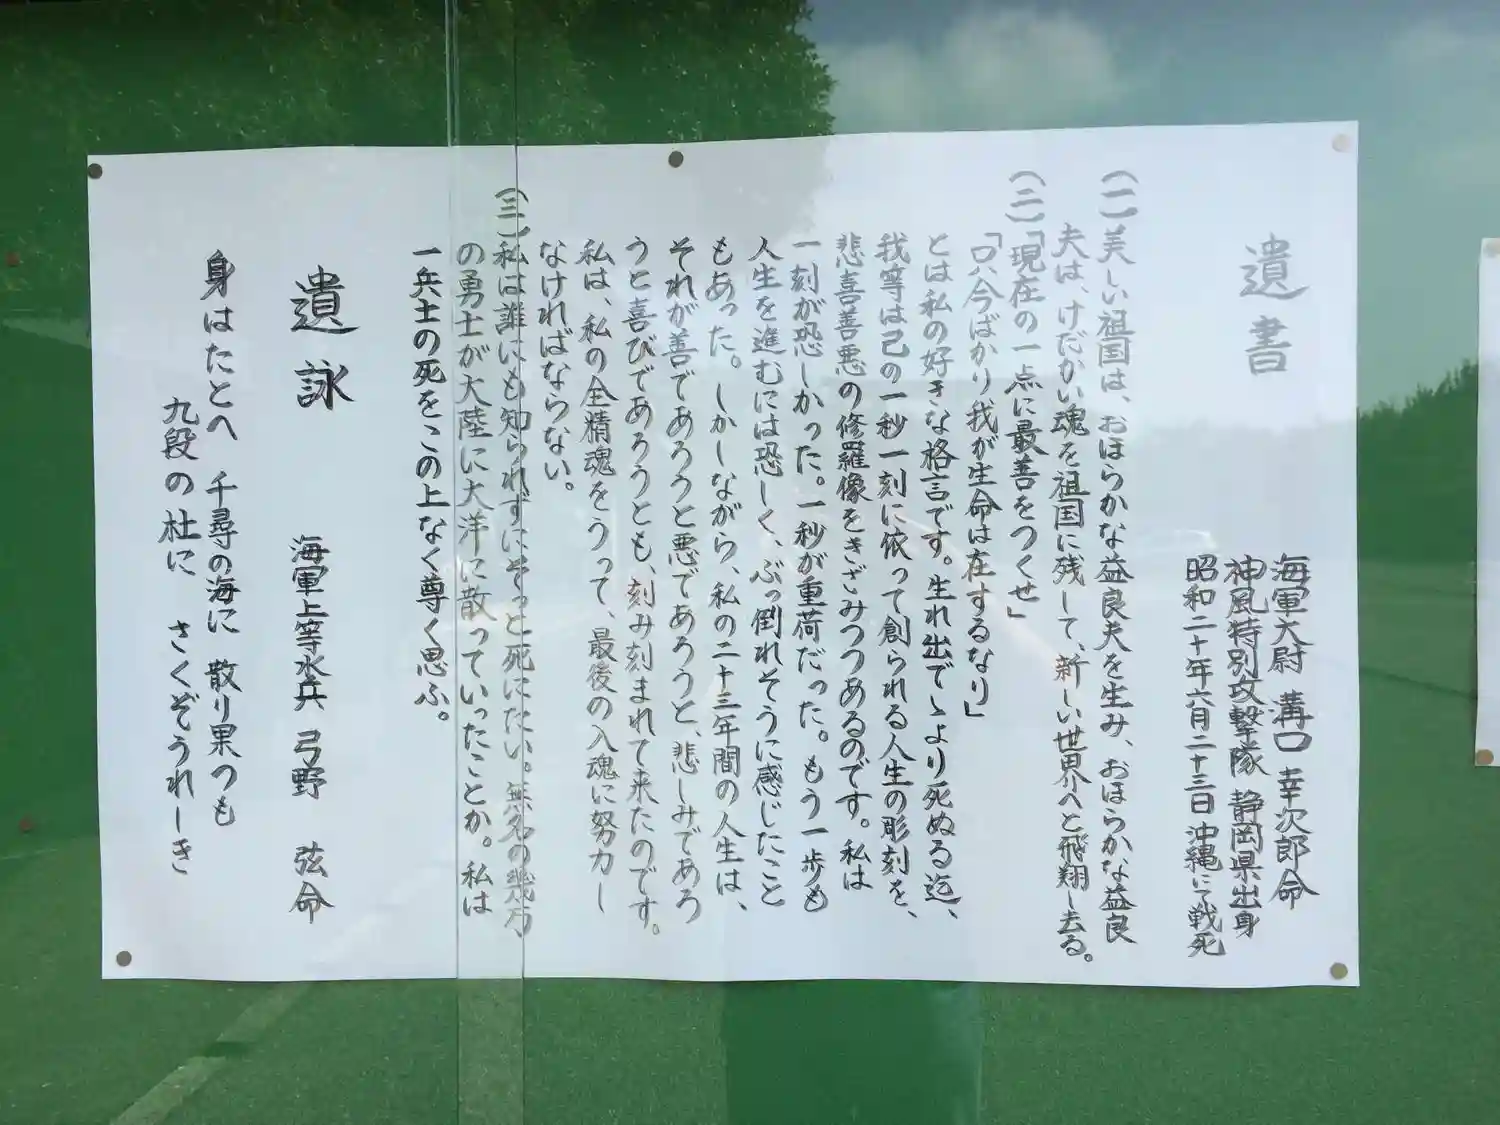 遺書
海軍大尉 溝口 幸次郎命
神風特別攻撃隊 静岡県出身
昭和二十年六月二十三日 沖縄にて戦死
(一)美しい祖国は、おほらかな益良夫を生み、おほらかな益良
夫は、けだかい魂を祖国に残して、新しい世界へと飛翔し去る。
(二)「現在の一点に最善をつくせ」
「只今ばかり我が生命は在するなり」
とは私の好きな格言です。生れ出でゝより死ぬる迄、
我等は己の一秒一刻に依って創られる人生の彫刻を、
悲喜善悪の修羅像をきざみつつあるのです。私は
一刻が恐しかった。一秒が重荷だった。もう一歩も
人生を進むには恐しく、ぶっ倒れそうに感じたこと
もあった。しかしながら、私の二十三年間の人生は、
それが善であろうと悪であろうと、悲しみであろ
うと喜びであろうとも、刻み刻まれて来たのです。
私は、私の全精魂をうって、最後の入魂に努力し
なければならない。
(三)私は誰にも知られずにそっと死にたい。無名の幾万
の勇士が大陸に大洋に散っていったことか。私は
一兵士の死をこの上なく尊く思ふ。
遺詠
海軍上等水兵 弓野 弦命
身はたとへ 千尋の海に 散り果つも
九段の杜に さくぞうれしき